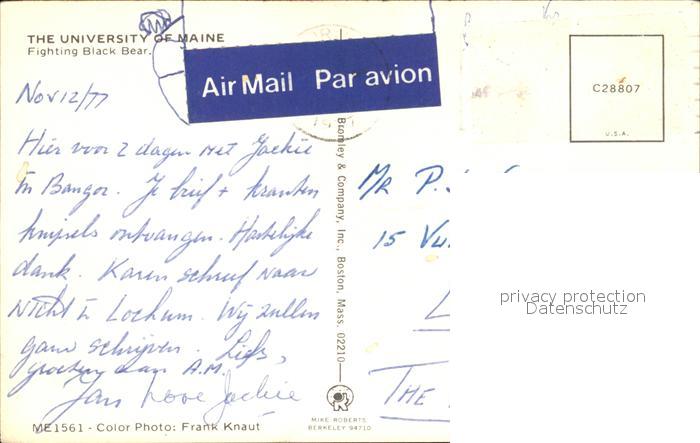 THE UNIVERSITY OF MAINE
Fighting Black Bear.
Air Mail Par avion
C28807
U.S.A.
Nov 12/77
Hier voor 2 dagen met Jackie
in Bangor. Je brief + kranten
knipsels ontvangen. Hartelijke
dank. Karen schreef naar
Nicht in Lochum. Wij zullen
gauw schrijven. Liefs,
groeten aan A.M.
Jan Love Jackie
Bromley & Company, Inc., Boston, Mass. 02210
MR P.
15
THE
privacy protection
Datenschutz
MIKE ROBERTS
BERKELEY 94710
ME1561 - Color Photo: Frank Knaut